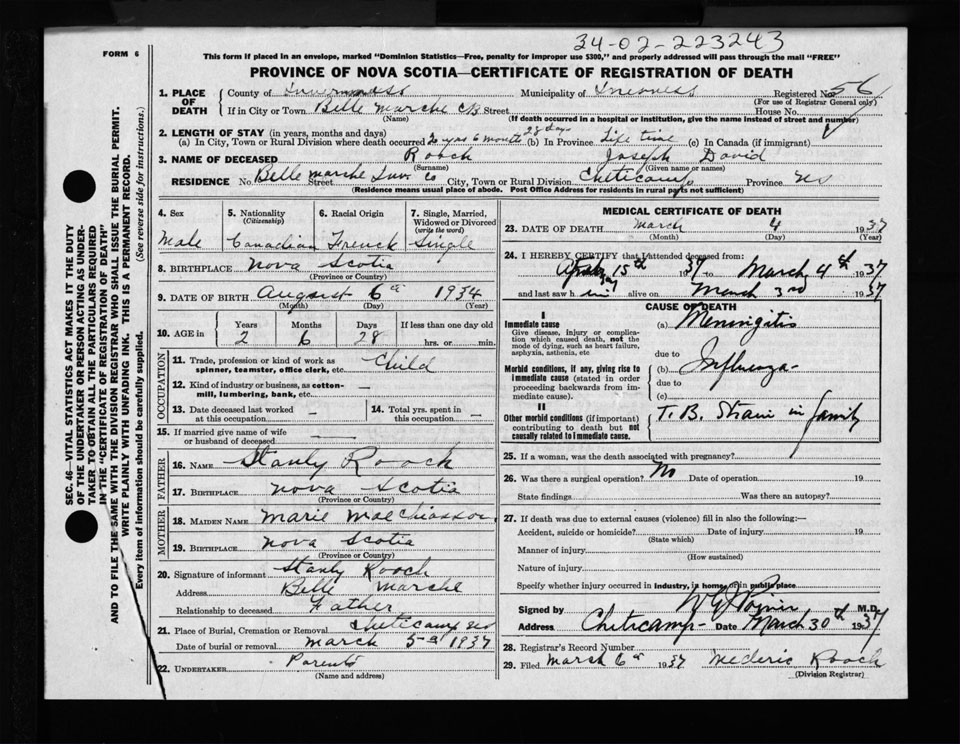 34-02-223243
FORM 6
This form if placed in an envelope, marked "Dominion Statistics—Free, penalty for improper use $300," and properly addressed will pass through the mail "FREE"
PROVINCE OF NOVA SCOTIA—CERTIFICATE OF REGISTRATION OF DEATH
SEC. 46—VITAL STATISTICS ACT MAKES IT THE DUTY
OF THE UNDERTAKER OR PERSON ACTING AS UNDER-
TAKER TO OBTAIN ALL THE PARTICULARS REQUIRED
IN THE "CERTIFICATE OF REGISTRATION OF DEATH"
AND TO FILE THE SAME WITH THE DIVISION REGISTRAR WHO SHALL ISSUE THE BURIAL PERMIT.
WRITE PLAINLY WITH UNFADING INK. THIS IS A PERMANENT RECORD.
Every item of information should be carefully supplied. (See reverse side for instructions.)
1. PLACE OF DEATH County of Inverness Municipality of Inverness Registered No. 56
(For use of Registrar General only)
If in City or Town Belle Marche CB Street House No.
(Name) (If death occurred in a hospital or institution, give the name instead of street and number)
2. LENGTH OF STAY (in years, months and days)
(a) In City, Town or Rural Division where death occurred 2 yrs 6 months 28 days (b) In Province Life time (c) In Canada (if immigrant)
3. NAME OF DECEASED Rooch Joseph David
(Surname) (Given name or names)
RESIDENCE No. Belle marche Inv Co Street City, Town or Rural Division Cheticamp Province NS
(Residence means usual place of abode. Post Office Address for residents in rural parts not sufficient)
4. Sex Male
5. Nationality (Citizenship) Canadian
6. Racial Origin French
7. Single, Married, Widowed or Divorced (write the word) Single
8. BIRTHPLACE Nova Scotia
(Province or Country)
9. DATE OF BIRTH August 6th 1934
(Month) (Day) (Year)
10. AGE in Years 2 Months 6 Days 28 If less than one day old hrs. or min.
OCCUPATION
11. Trade, profession or kind of work as spinner, teamster, office clerk, etc. Child
12. Kind of industry or business, as cotton-mill, lumbering, bank, etc. —
13. Date deceased last worked at this occupation —
14. Total yrs. spent in this occupation —
15. If married give name of wife or husband of deceased —
FATHER
16. NAME Stanly Rooch
17. BIRTHPLACE Nova Scotia
(Province or Country)
MOTHER
18. MAIDEN NAME Marie Mae Chiasson
19. BIRTHPLACE Nova Scotia
(Province or Country)
20. Signature of informant Stanly Rooch
Address Belle Marche
Relationship to deceased Father
21. Place of Burial, Cremation or Removal Cheticamp
Date of burial or removal March 5th 1937
22. UNDERTAKER Parents
(Name and address)
MEDICAL CERTIFICATE OF DEATH
23. DATE OF DEATH March 4 1937
(Month) (Day) (Year)
24. I HEREBY CERTIFY that I attended deceased from:
15th 1937 to March 4th 1937
and last saw him alive on March 3rd 1937
CAUSE OF DEATH
I
Immediate cause
Give disease, injury or complication which caused death, not the mode of dying, such as heart failure, asphyxia, asthenia, etc
(a) Meningitis
due to
Morbid conditions, if any, giving rise to immediate cause (stated in order proceeding backwards from immediate cause).
(b) Influenza
due to
(c)
II
Other morbid conditions (if important) contributing to death but not causally related to immediate cause.
T.B. Strain in family
25. If a woman, was the death associated with pregnancy?
26. Was there a surgical operation? No Date of operation 19
State findings Was there an autopsy?
27. If death was due to external causes (violence) fill in also the following:—
Accident, suicide or homicide? Date of injury 19
(State which)
Manner of injury
(How sustained)
Nature of injury
Specify whether injury occurred in industry, in home, or in public place
Signed by M.D.
Address Cheticamp Date March 30th 1937
28. Registrar's Record Number
29. Filed March 6th 1937 Mederic Rooch
(Division Registrar)